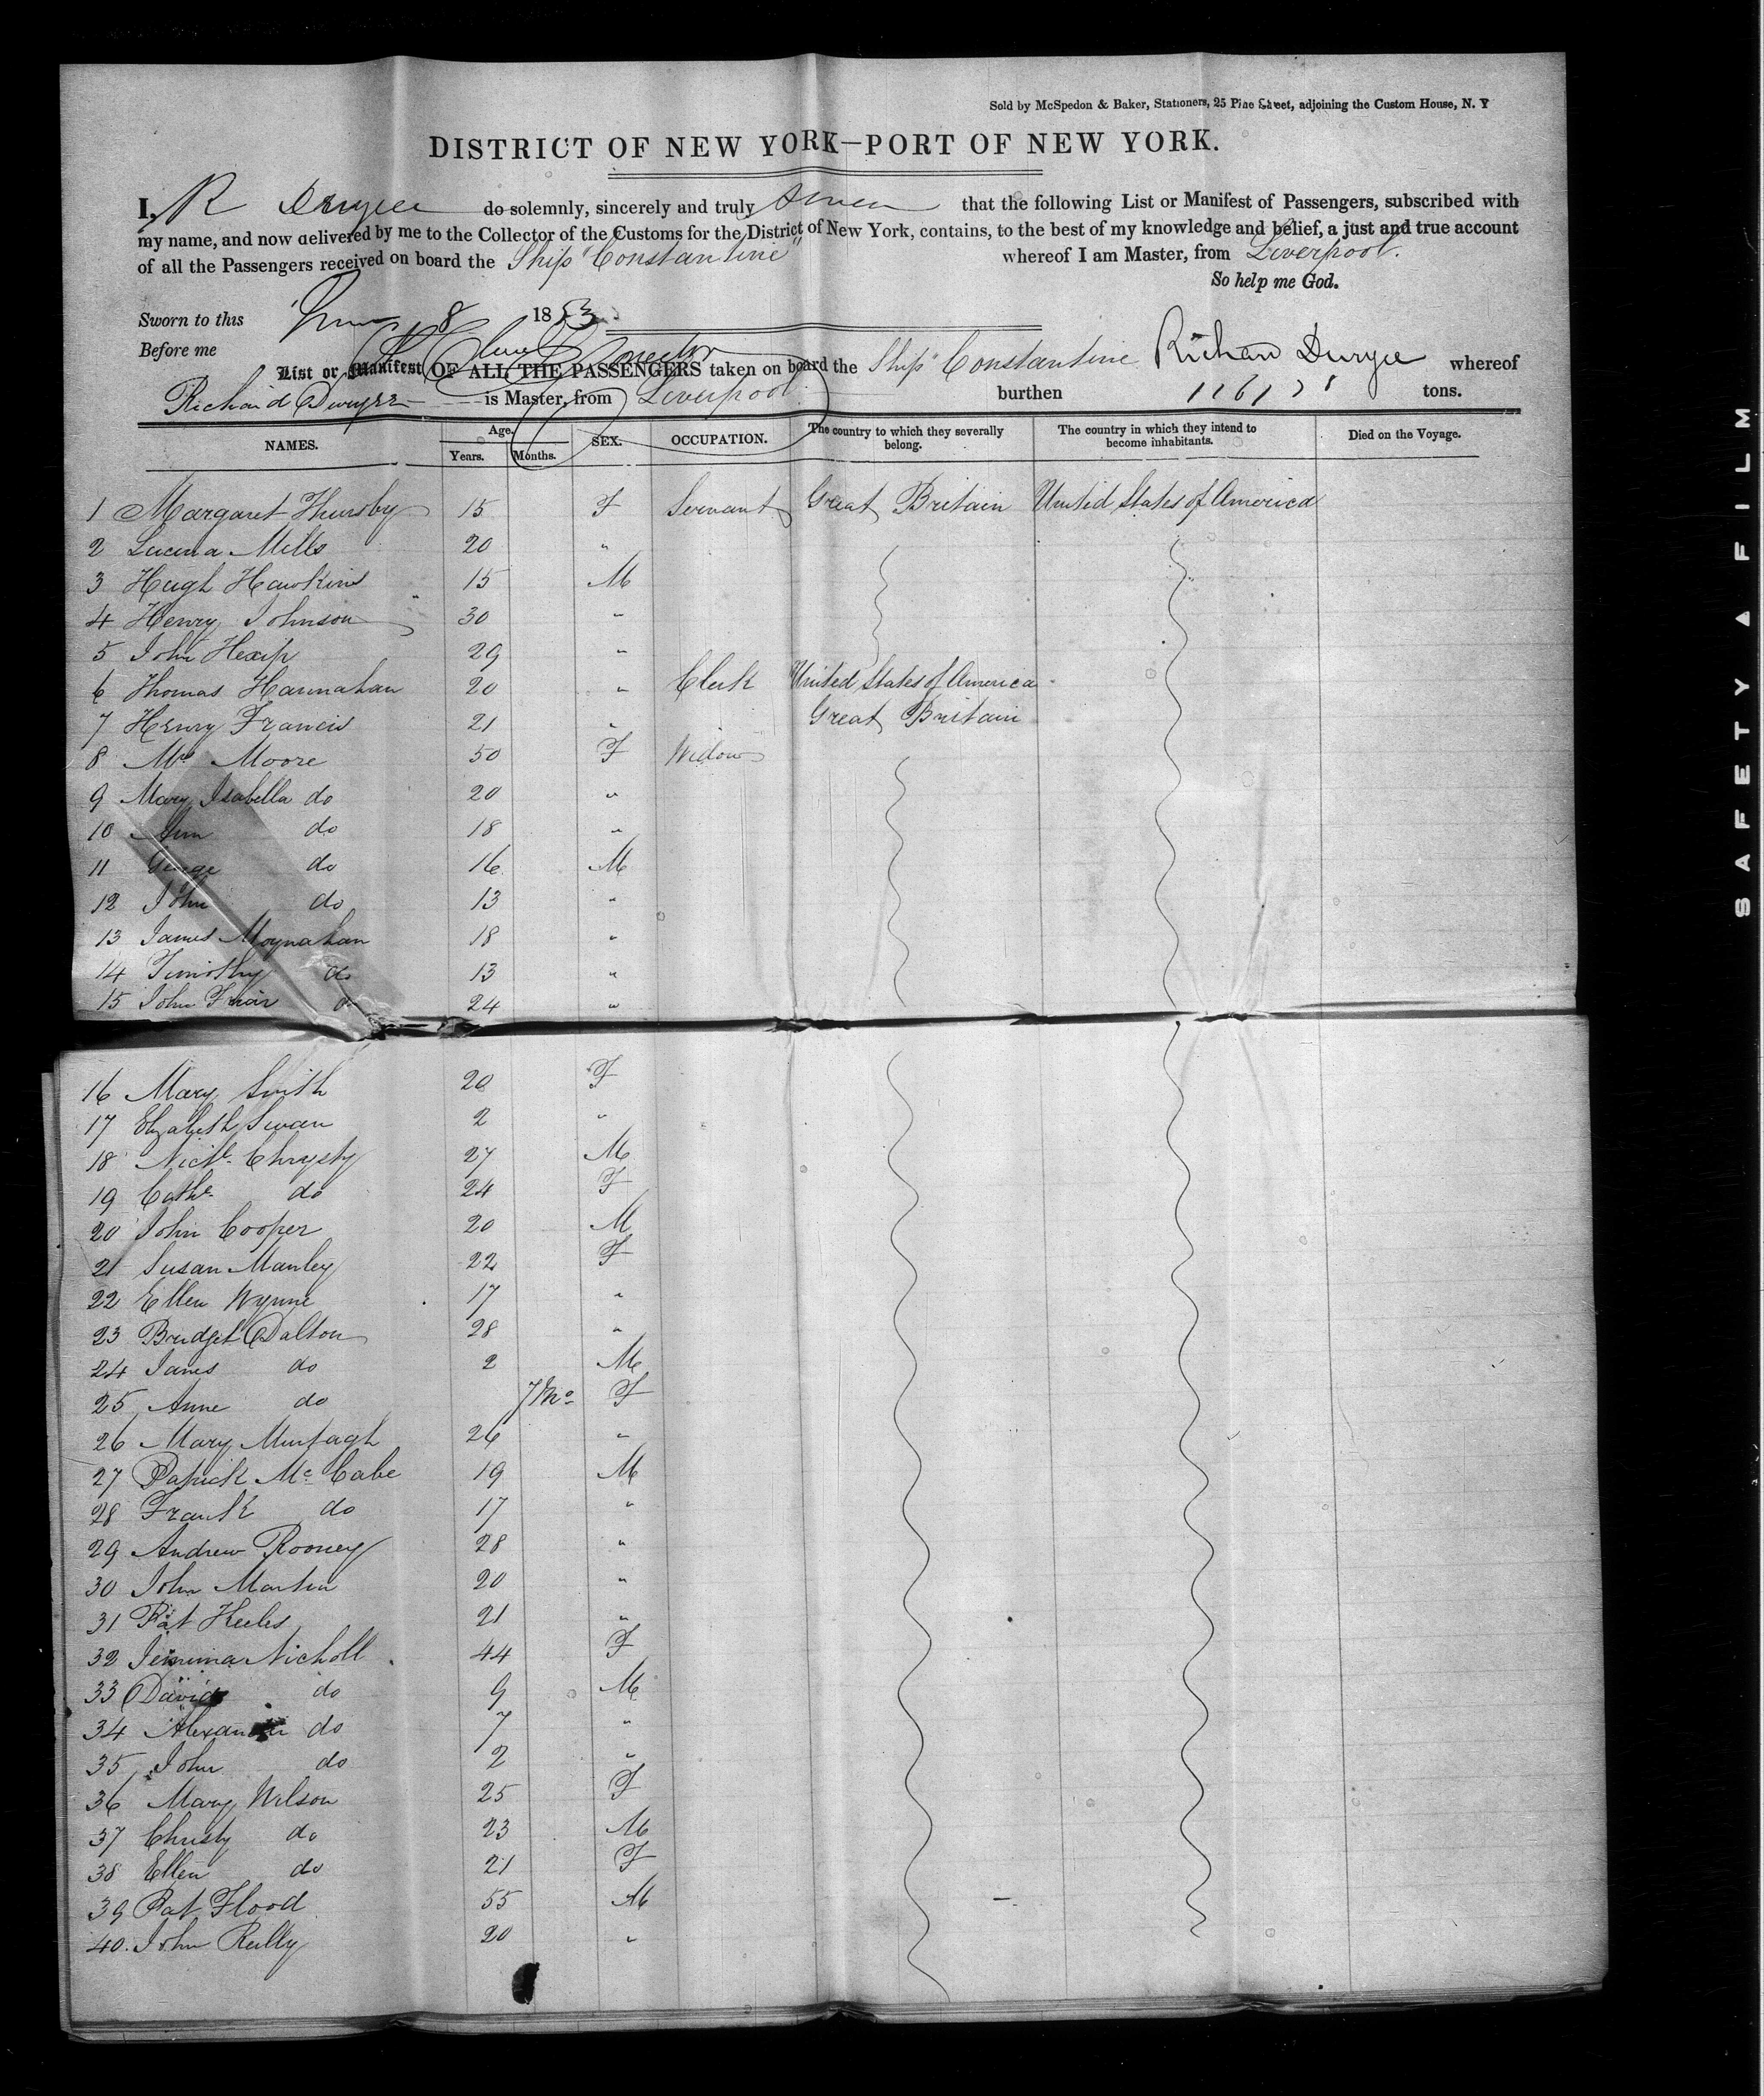 Sold by McSpedon & Baker, Stationers, 25 Pine Street, adjoining the Custom House, N. Y
DISTRICT OF NEW YORK—PORT OF NEW YORK.
I, R Duryee do solemnly, sincerely and truly swear that the following List or Manifest of Passengers, subscribed with
my name, and now delivered by me to the Collector of the Customs for the District of New York, contains, to the best of my knowledge and belief, a just and true account
of all the Passengers received on board the Ship "Constantine" whereof I am Master, from Liverpool.
So help me God.
Sworn to this 8 1853
Before me
List or Manifest OF ALL THE PASSENGERS taken on board the Ship Constantine Richard Duryee whereof
Richard Duryee is Master, from Liverpool burthen tons.
NAMES. Age. Years. Months. SEX. OCCUPATION. The country to which they severally belong. The country in which they intend to become inhabitants. Died on the Voyage.
1 Margaret Thursby 15 F Servant Great Britain United States of America
2 Mills 20 "
3 Hugh Hawkins 15 M
4 Henry Johnson 30 "
5 John 29 "
6 Thomas Hannahan 20 " Clerk United States of America
7 Henry Francis 21 " Great Britain
8 Mrs Moore 50 F Widow
9 Mary Isabella do 20 "
10 Ann do 18 "
11 George do 16 M
12 John do 13 "
13 James Moynahan 18 "
14 Timothy do 13 "
15 John 24 "
16 Mary Smith 20 F
17 Elizabeth Swan 2 "
18 Nichs. Chrysty 27 M
19 Cathe. do 24 F
20 John Cooper 20 M
21 Susan Manley 22 F
22 Ellen Wynne 17 "
23 Bridget Dalton 28 "
24 James do 2 M
25 Anne do 7 Mo. F
26 Mary Murtagh 26 "
27 Patrick McCabe 19 M
28 Frank do 17 "
29 Andrew Rooney 28 "
30 John Martin 20 "
31 Pat 21 "
32 Jemima Nicholl 44 F
33 David do 9 M
34 Alexander do 7 "
35 John do 2 "
36 Mary Wilson 25 F
37 Christy do 23 M
38 Ellen do 21 F
39 Pat Flood 55 M
40. John Reilly 20 "
SAFETY FILM